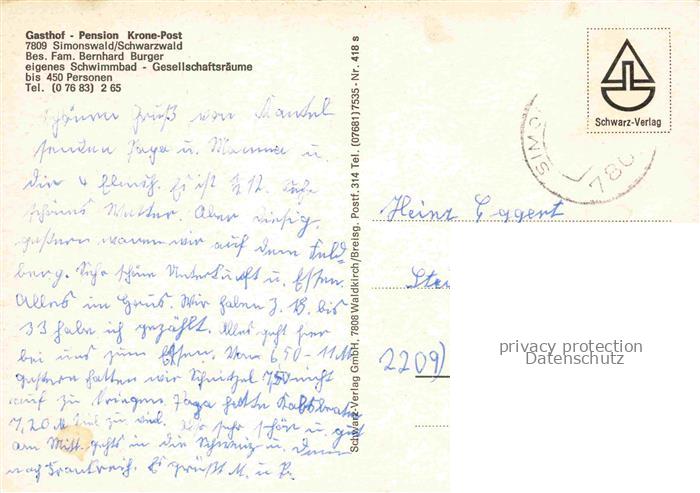 Gasthof - Pension Krone-Post
7809 Simonswald/Schwarzwald
Bes. Fam. Bernhard Burger
eigenes Schwimmbad - Gesellschaftsräume
bis 450 Personen
Tel. (0 76 83) 2 65
Schönen Gruß von
senden Papa u. Mamma u.
die 4 Elmsh. Es ist z. Zt. sehr
schönes Wetter. Aber diesig.
gestern waren wir auf dem Feld=
berg. Sehr schöne Unterkunft u. Essen.
Alles im Haus. Wir haben z. B. bis
33 habe ich gezählt. Alles geht hier
bei uns zum Essen. Vom 6 50 - 11 M
gestern hatten wir Schnitzel 7 50 nicht
auf zu kriegen. Papa hatte
7,20 M viel zu viel. Also sehr schön u. gut
am Mitt. gehts in die Schweiz u. dann
nach Frankreich. Es grüßt M. u. P.
Schwarz-Verlag GmbH, 7808 Waldkirch/Breisg. Postf. 314 Tel. (07681) 7535 - Nr. 418 s
Schwarz-Verlag
SIMO
780
Heinz Eggert
2209)
privacy protection
Datenschutz